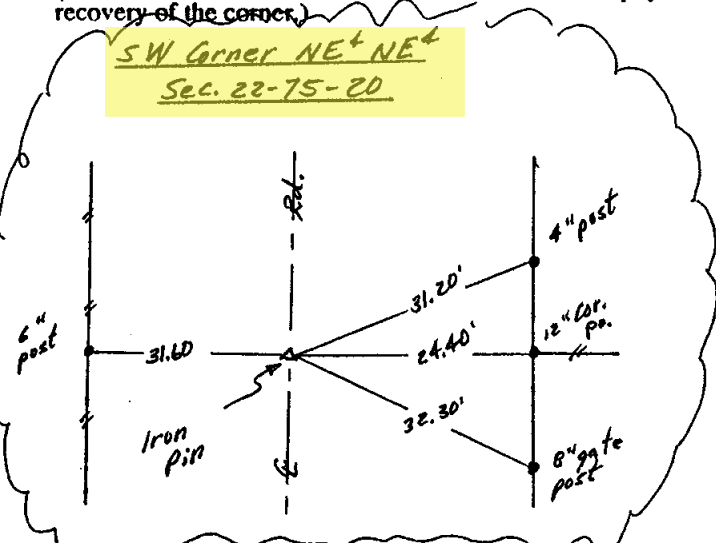 recovery of the corner.)
SW Corner NE¼ NE¼
Sec. 22-75-20
Rd.
4" post
31.20'
6"
post
31.60
24.40'
12" Cor.
po.
32.30'
Iron
Pin
℄
8" gate
post